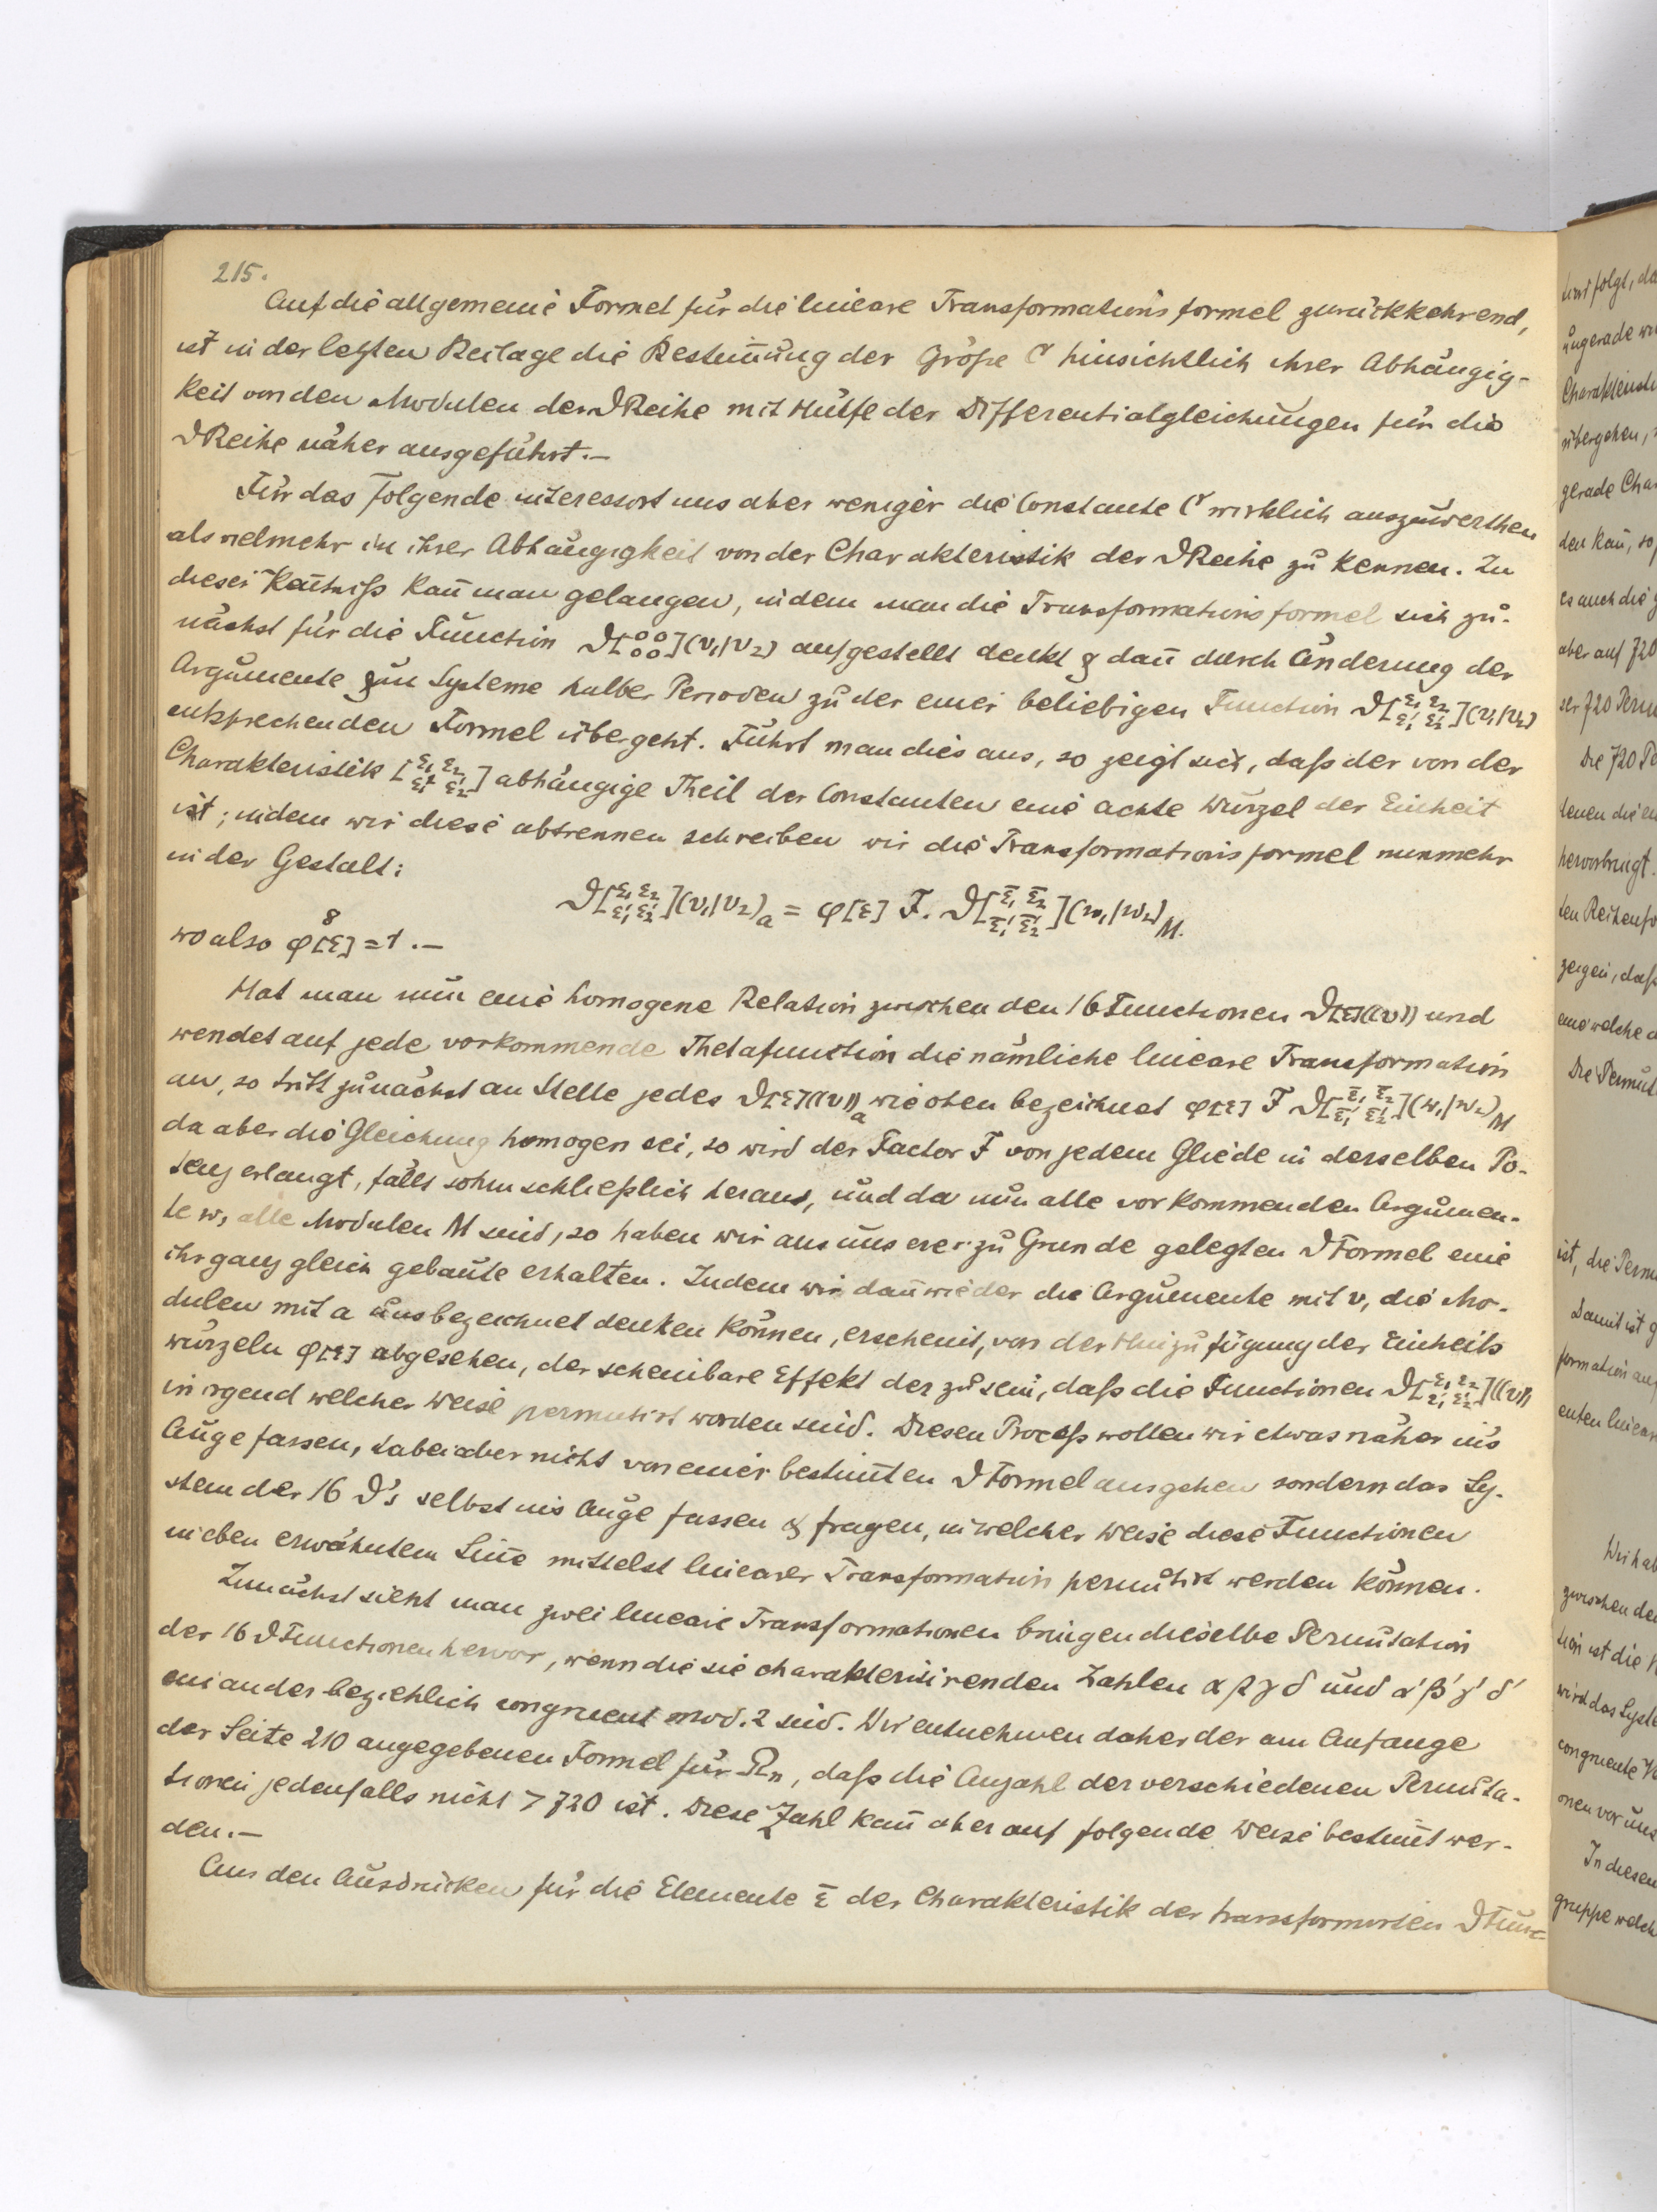 215.
Auf die allgemeine Formel für die lineare Transformationsformel zurückkehrend,
ist in der letzten Beilage die Bestim̅ung der Größe C hinsichtlich ihrer Abhängig-
keit von den Modulen der ϑReihe mit Hülfe der Differentialgleichungen für die
ϑReihe näher ausgeführt.—
Für das Folgende interessirt uns aber weniger die Constante C wirklich auszuwerthen
als vielmehr in ihrer Abhängigkeit von der Charakteristik der ϑReihe zu kennen. Zu
dieser Ken̅tniß kan̅ man gelangen, indem man die Transformationsformel sich zu-
nächst für die Function ϑ[⁰₀ ⁰₀](v₁|v₂) aufgestellt denkt & dan̅ durch Änderung der
Argumente um Systeme halber Perioden zu der einer beliebigen Function ϑ[ε₁ ε₂ ε₁' ε₂'](v₁|v₂)
entsprechenden Formel übergeht. Führt man dies aus, so zeigt sich, daß der von der
Charakteristik [ε₁ ε₂ ε₁' ε₂'] abhängige Theil der Constanten eine achte Wurzel der Einheit
ist; indem wir diese abtrennen schreiben wir die Transformationsformel nunmehr
in der Gestalt:
ϑ[ε₁ ε₂ ε₁' ε₂'](v₁|v₂)ₐ = φ[ε] F. ϑ[ε̄₁ ε̄₂ ε̄₁' ε̄₂'](w₁|w₂)_M.
wo also φ⁸[ε] = 1.—
Hat man nun eine homogene Relation zwischen den 16 Functionen ϑ[ε]((v)) und
wendet auf jede vorkommende Thetafunction die nämliche lineare Transformation
an, so tritt zunächst an Stelle jedes ϑ[ε]((v))ₐ wie oben bezeichnet φ[ε] F ϑ[ε̄₁ ε̄₂ ε̄₁' ε̄₂'](w₁|w₂)_M
da aber die Gleichung homogen sei, so wird der Factor F von jedem Gliede in derselben Po-
tenz erlangt, fällt sohin schließlich heraus, und da nun alle vorkommenden Argumen-
te w, alle Modulen M sind, so haben wir aus unserer zu Grunde gelegten ϑFormel eine
ihr ganz gleich gebaute erhalten. Indem wir dan̅ wieder die Argumente mit v, die Mo-
dulen mit a uns bezeichnet denken können, erscheint, von der Hinzufügung der Einheits
wurzeln φ[ε] abgesehen, der scheinbare Effekt der zu sein, daß die Functionen ϑ[ε₁ ε₂ ε₁' ε₂']((v))
in irgend welcher Weise permutirt worden sind. Diesen Proceß wollen wir etwas näher in's
Auge fassen, dabei aber nicht von einer bestim̅ten ϑFormel ausgehen sondern das Sy-
stem der 16 ϑ's selbst ins Auge fassen & fragen, in welcher Weise diese Functionen
in eben erwähntem Sin̅e mittelst linearer Transformation permutirt werden können.
Zunächst sieht man zwei lineare Transformationen bringen dieselbe Permutation
der 16 ϑFunctionen hervor, wenn die sie charakterisirenden Zahlen α β γ δ und α' β' γ' δ'
einander beziehlich congruent mod. 2 sind. Wir entnehmen daher der am Anfange
der Seite 210 angegebenen Formel für Rₙ, daß die Anzahl der verschiedenen Permuta-
tionen jedenfalls nicht > 720 ist. Diese Zahl kan̅ aber auf folgende Weise bestim̅t wer-
den.—
Aus den Ausdrücken für die Elemente ε̄ der Charakteristik der transformirten ϑFunc-